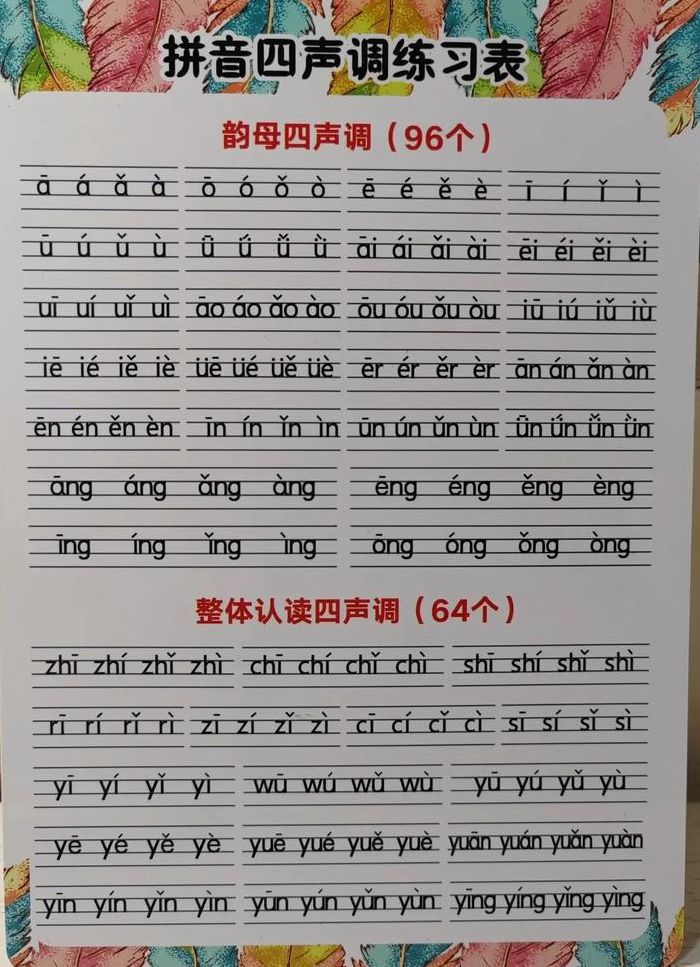 拼音四声调练习表
韵母四声调（96个）
ā á ǎ à ō ó ǒ ò ē é ě è ī í ǐ ì
ū ú ǔ ù ǖ ǘ ǚ ǜ āi ái ǎi ài ēi éi ěi èi
uī uí uǐ uì āo áo ǎo ào ōu óu ǒu òu iū iú iǔ iù
iē ié iě iè üē üé üě üè ēr ér ěr èr ān án ǎn àn
ēn én ěn èn īn ín ǐn ìn ūn ún ǔn ùn ǖn ǘn ǚn ǜn
āng áng ǎng àng ēng éng ěng èng
īng íng ǐng ìng ōng óng ǒng òng
整体认读四声调（64个）
zhī zhí zhǐ zhì chī chí chǐ chì shī shí shǐ shì
rī rí rǐ rì zī zí zǐ zì cī cí cǐ cì sī sí sǐ sì
yī yí yǐ yì wū wú wǔ wù yū yú yǔ yù
yē yé yě yè yuē yué yuě yuè yuān yuán yuǎn yuàn
yīn yín yǐn yìn yūn yún yǔn yùn yīng yíng yǐng yìng